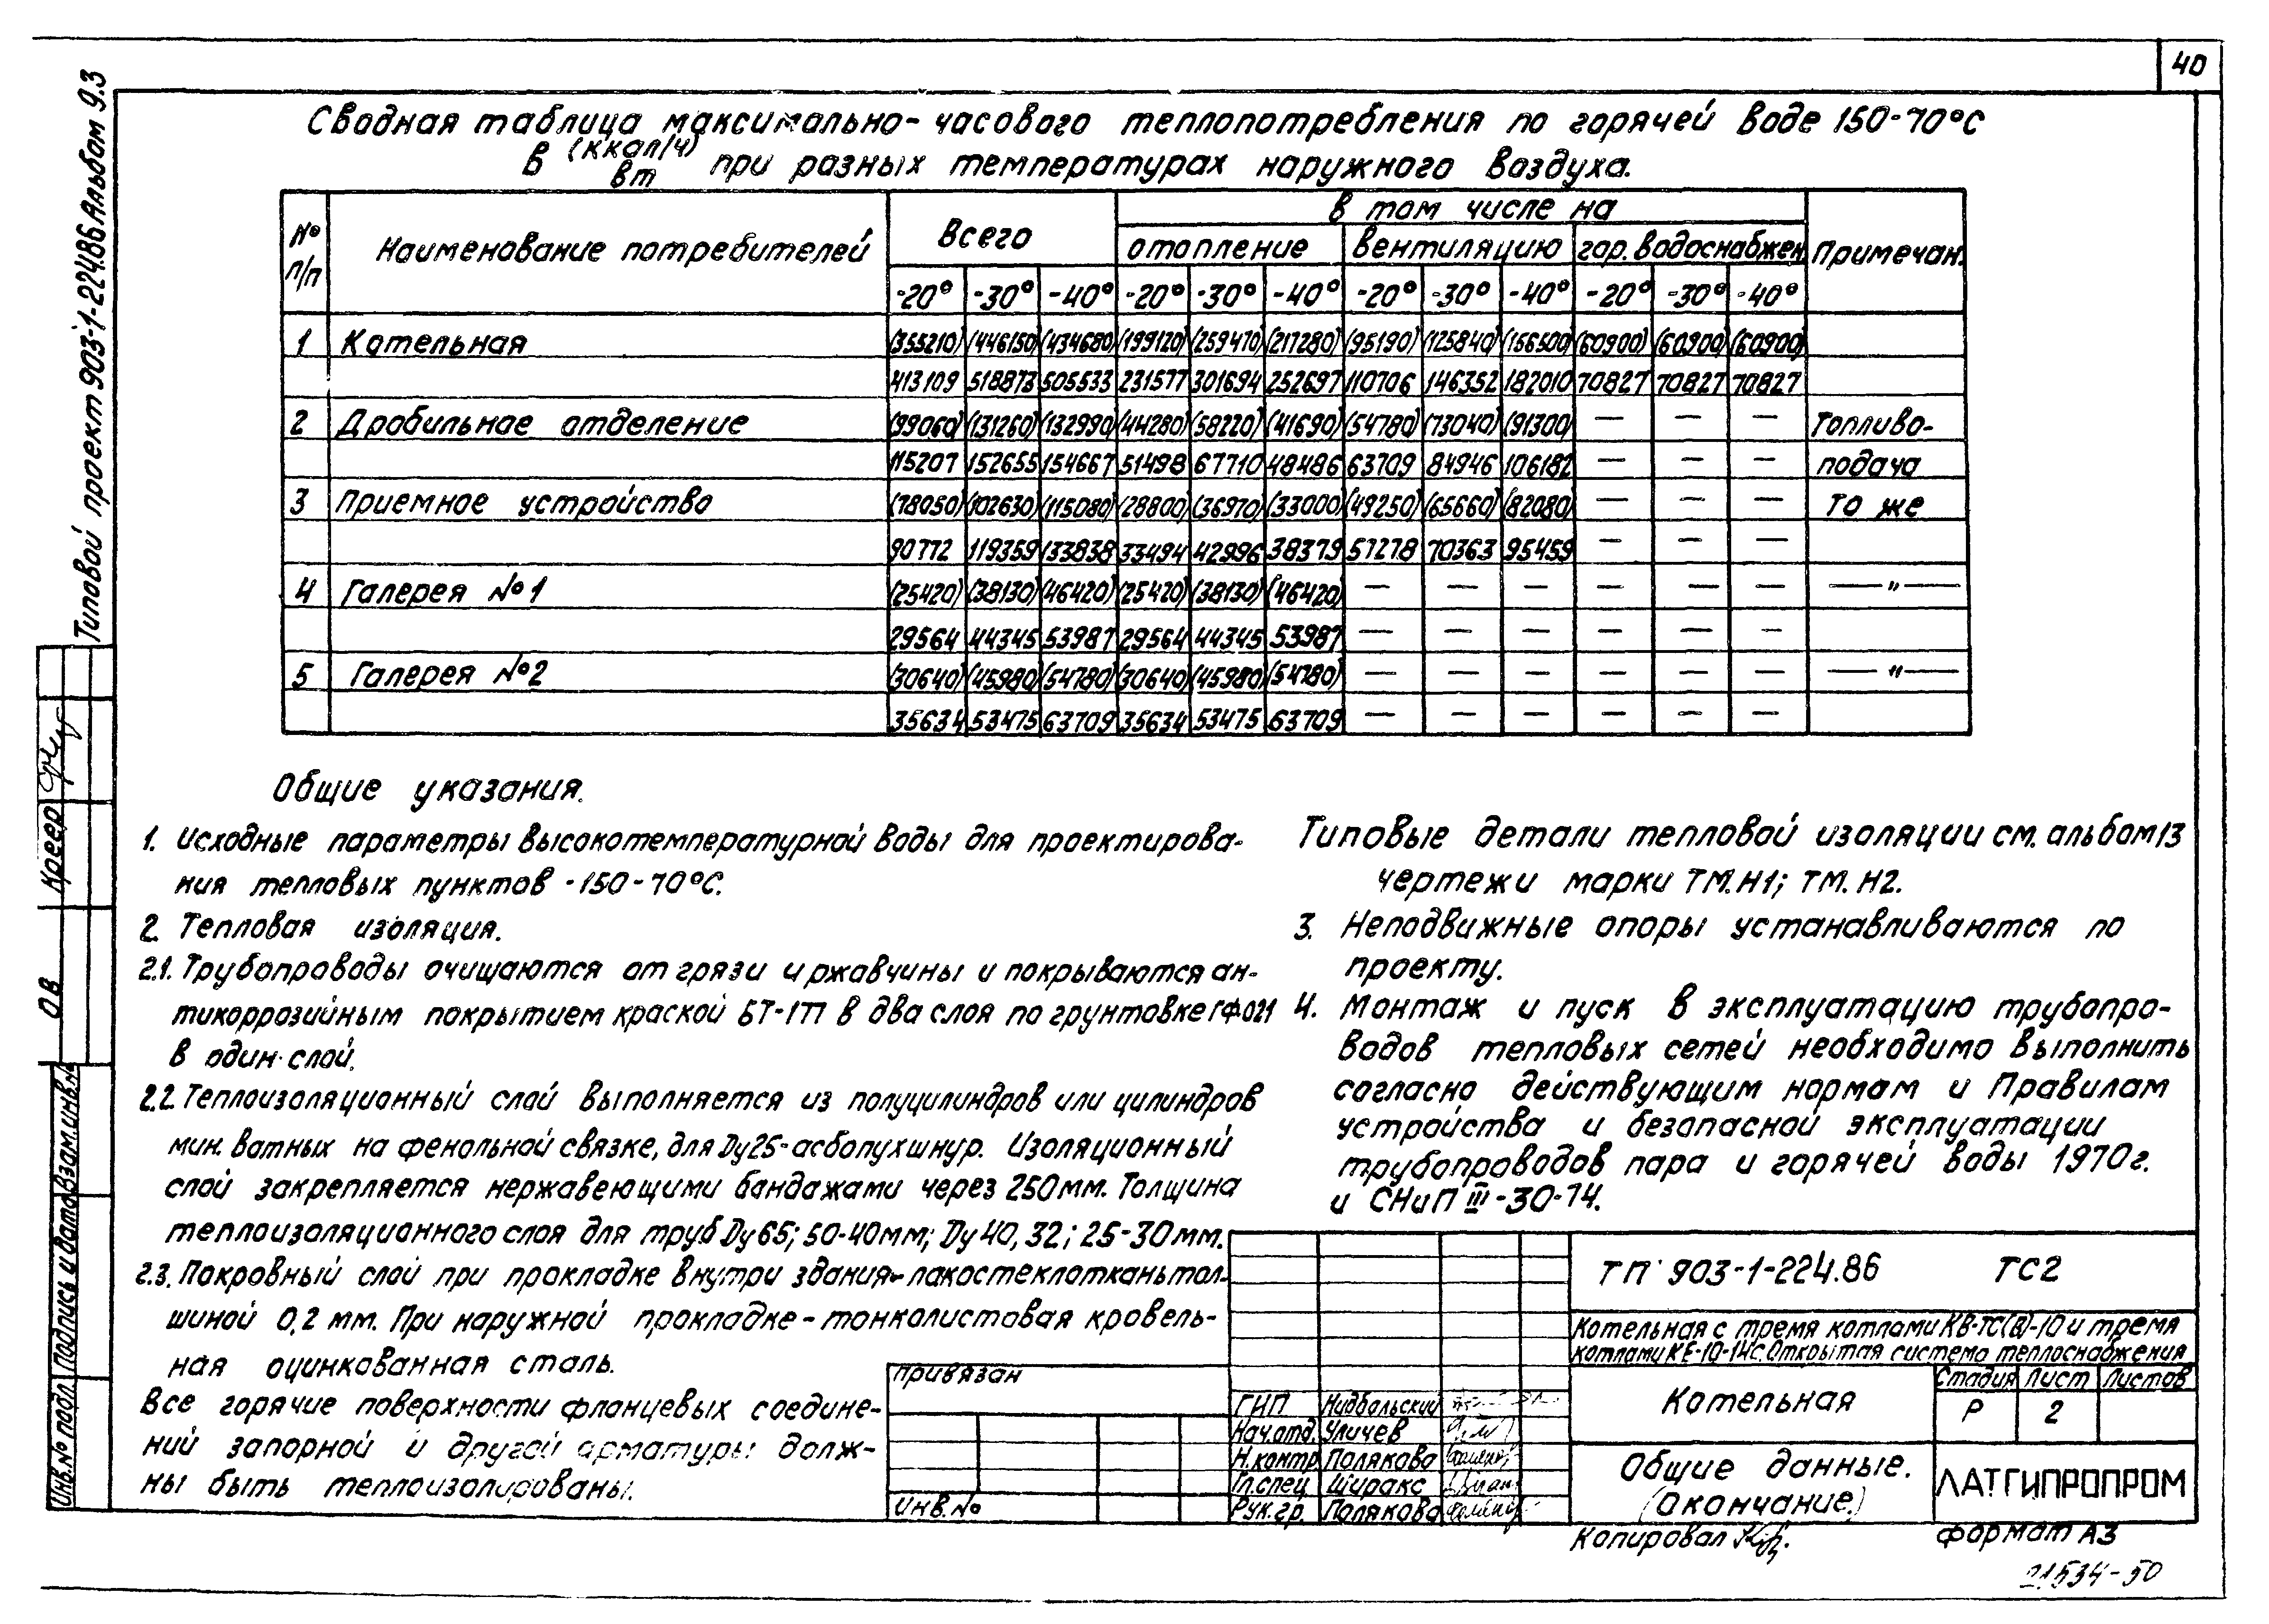 40
Типовой проект 903-1-224.86 Альбом 9.3
Сводная таблица максимально-часового теплопотребления по горячей воде 150-70°С
в (ккал/ч) вт при разных температурах наружного воздуха.
№ п/п Наименование потребителей Всего в том числе на Примечан.
отопление вентиляцию гор. водоснабжен
-20° -30° -40° -20° -30° -40° -20° -30° -40° -20° -30° -40°
1 Котельная (355210) (446150) (434680) (199120) (259470) (217280) (95190) (125840) (156500) (60900) (60900) (60900)
413109 518873 505533 231577 301694 252697 110706 146352 182010 70827 70827 70827
2 Дробильное отделение (99060) (131260) (132990) (44280) (58220) (41690) (54780) (73040) (91300) — — — Топливо-
115207 152655 154667 51498 67710 48486 63709 84946 106182 — — — подача
3 Приемное устройство (78050) (102630) (115080) (28800) (36970) (33000) (49250) (65660) (82080) — — — то же
90772 119359 133838 33494 42996 38379 57278 70363 95459 — — —
4 Галерея №1 (25420) (38130) (46420) (25420) (38130) (46420) — — — — — — —"—
29564 44345 53987 29564 44345 53987 — — — — — —
5 Галерея №2 (30640) (45980) (54780) (30640) (45980) (54780) — — — — — — —"—
35634 53475 63709 35634 53475 63709 — — — — — —
Общие указания.
1. Исходные параметры высокотемпературной воды для проектирова-
ния тепловых пунктов -150-70°С.
2. Тепловая изоляция.
2.1. Трубопроводы очищаются от грязи и ржавчины и покрываются ан-
тикоррозийным покрытием краской БТ-177 в два слоя по грунтовке ГФ.021
в один слой.
2.2. Теплоизоляционный слой выполняется из полуцилиндров или цилиндров
мин. ватных на фенольной связке, для Ду25-асбопухшнур. Изоляционный
слой закрепляется нержавеющими бандажами через 250мм. Толщина
теплоизоляционного слоя для труб Ду 65; 50-40мм; Ду 40, 32; 25-30мм.
2.3. Покровный слой при прокладке внутри здания-лакостеклоткань тол-
шиной 0,2 мм. При наружной прокладке-тонколистовая кровель-
ная оцинкованная сталь.
Все горячие поверхности фланцевых соедине-
ний запорной и другой арматуры долж-
ны быть теплоизолированы.
Типовые детали тепловой изоляции см. альбом 13
чертежи марки ТМ.Н1; ТМ.Н2.
3. Неподвижные опоры устанавливаются по
проекту.
4. Монтаж и пуск в эксплуатацию трубопро-
водов тепловых сетей необходимо выполнить
согласно действующим нормам и Правилам
устройства и безопасной эксплуатации
трубопроводов пара и горячей воды 1970г.
и СНиП III-30-74.
ТП 903-1-224.86 ТС2
Котельная с тремя котлами КВ-ТС(В)-10 и тремя
котлами КЕ-10-14С. Открытая система теплоснабжения
Привязан
Инв.№
ГИП Нидбальский
Нач.отд. Уличев
Н.контр. Полякова
Гл.спец Ширакс
Рук.гр. Полякова
Котельная
Стадия Лист Листов
Р 2
Общие данные.
(Окончание.)
ЛАТГИПРОПРОМ
Копировал
Формат А3
21534-50
ОВ Креер
Инв.№ подл. Подпись и дата Взам.инв.№